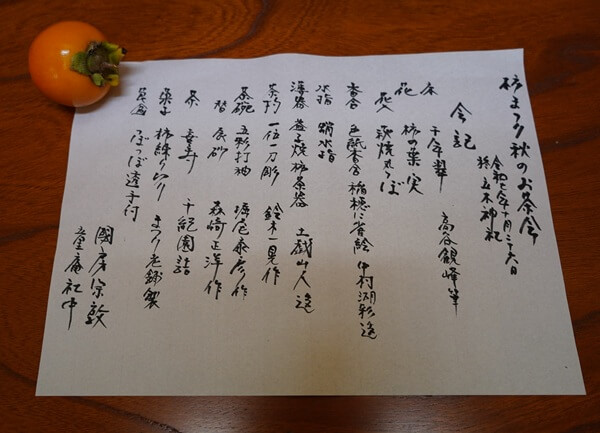 柿まつり秋のお茶会
令和七年十月二十六日
於 五木神社
会記
床 千年翠 高谷観峰筆
花 柿の葉 実
花入 萩焼丸つぼ
香合 色紙香合 稲穂に雀絵 中村湖彩造
水指 鯛水指
薄器 益子焼柿茶器 土戯山人造
茶杓 一位一刀彫 鈴木一見作
茶碗 五彩打釉 堀尾泰彦作
替 辰砂 森崎正洋作
茶 喜寿 千紀園詰
菓子 柿練りきり まつり老舗製
菓器 ぽっぽ透子付
國房宗敦
童庵社中